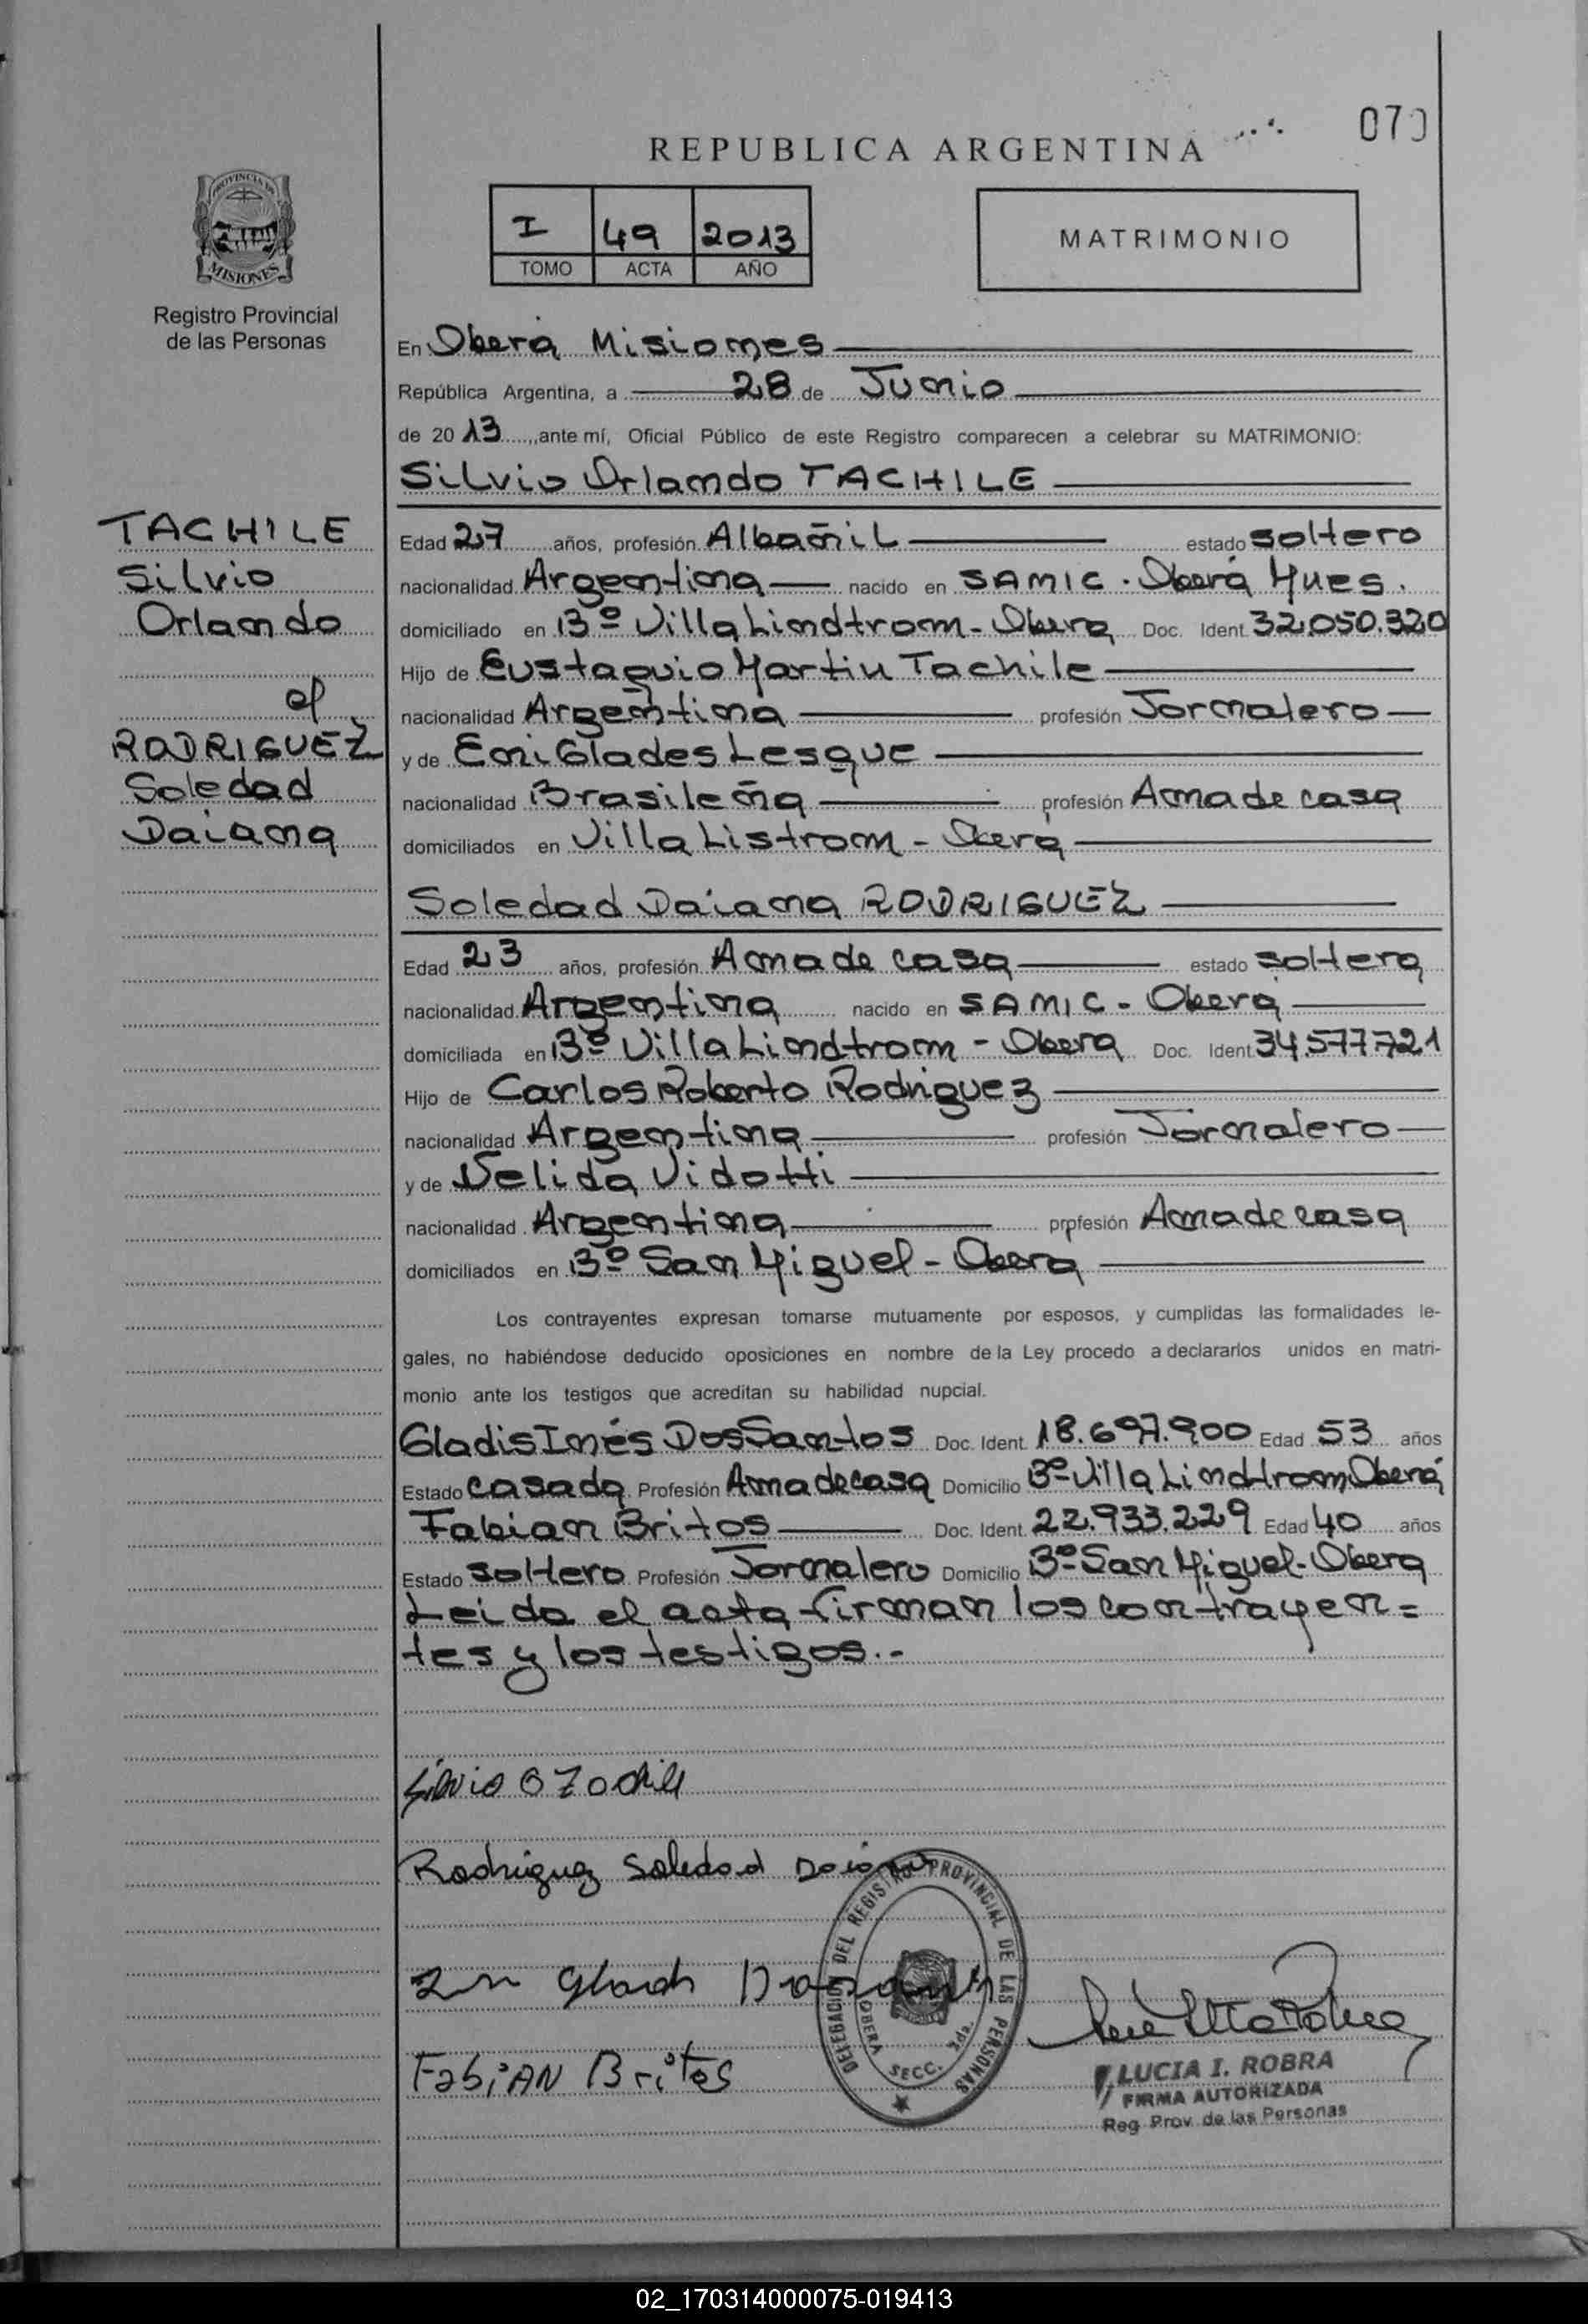 070
REPUBLICA ARGENTINA
I 49 2013
TOMO ACTA AÑO
MATRIMONIO
PROVINCIA DE
MISIONES
Registro Provincial
de las Personas
En Oberá Misiones
República Argentina, a 28 de Junio
de 2013, ante mí, Oficial Público de este Registro comparecen a celebrar su MATRIMONIO:
Silvio Orlando TACHILE
TACHILE
Silvio
Orlando
RODRIGUEZ
Soledad
Daiana
Edad 27 años, profesión Albañil estado soltero
nacionalidad Argentina nacido en SAMIC. Oberá Mnes.
domiciliado en Bº Villa Lindtrom - Oberá Doc. Ident. 32.050.320
Hijo de Eustaquio Martin Tachile
nacionalidad Argentina profesión Jornalero
y de Eni Glades Lesque
nacionalidad Brasileña profesión Ama de casa
domiciliados en Villa Listrom - Oberá
Soledad Daiana RODRIGUEZ
Edad 23 años, profesión Ama de casa estado soltera
nacionalidad Argentina nacido en SAMIC - Oberá
domiciliada en Bº Villa Lindtrom - Oberá Doc. Ident. 34.577.721
Hijo de Carlos Roberto Rodriguez
nacionalidad Argentina profesión Jornalero
y de Nelida Vidotti
nacionalidad Argentina profesión Ama de casa
domiciliados en Bº San Miguel - Oberá
Los contrayentes expresan tomarse mutuamente por esposos, y cumplidas las formalidades le-
gales, no habiéndose deducido oposiciones en nombre de la Ley procedo a declararlos unidos en matri-
monio ante los testigos que acreditan su habilidad nupcial.
Gladis Inés Dos Santos Doc. Ident. 18.697.900 Edad 53 años
Estado casada Profesión Ama de casa Domicilio Bº Villa Lindtrom Oberá
Fabian Britos Doc. Ident. 22.933.229 Edad 40 años
Estado soltero Profesión Jornalero Domicilio Bº San Miguel - Oberá
Leida el acta firman los contrayen=
tes y los testigos.-
Silvio O Tachile
Rodriguez Soledad Daiana
Fabian Britos
DELEGACION DEL REGISTRO PROVINCIAL DE LAS PERSONAS
OBERA SECC. 2da.
LUCIA I. ROBRA
FIRMA AUTORIZADA
Reg. Prov. de las Personas
02_170314000075-019413